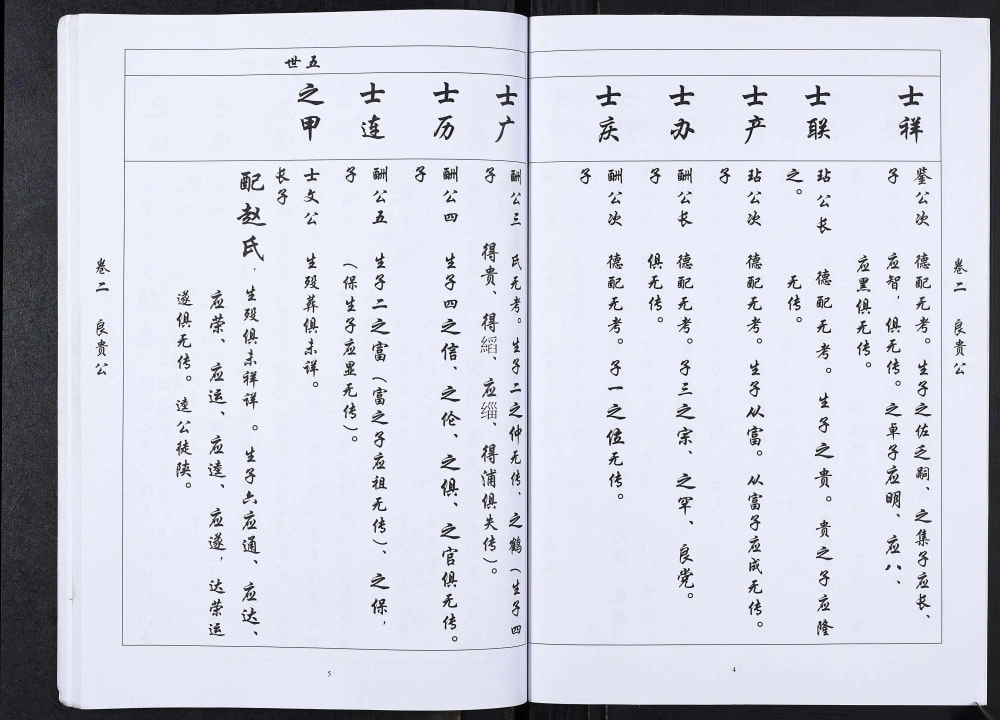 卷二 良贵公
士祥
鉴公次子
德配无考。生子之佐乏嗣、之集子应长、
应智，俱无传。之卓子应明、应八、
应黑俱无传。
士联
玷公长
之。
德配无考。生子之贵。贵之子应隆
无传。
士产
玷公次子
德配无考。生子从富。从富子应成无传。
士办
酬公长子
德配无考。子三之宗、之罕、良党。
俱无传。
士庆
酬公次子
德配无考。子一之位无传。
4
士广
酬公三子
氏无考。生子二之仲无传、之鹤（生子四
得贵、得縚、应缁、得浦俱失传）。
士历
酬公四子
生子四之信、之伦、之俱、之官俱无传。
士连
酬公五子
生子二之富（富之子应祖无传）、之保，
（保生子应显无传）。
五世
之甲
士文公长子
生殁葬俱未详。
配赵氏，生殁俱未祥详。生子六应通、应达、
应荣、应运、应逵、应遂，达荣运
遂俱无传。逵公徒陕。
卷二 良贵公
5